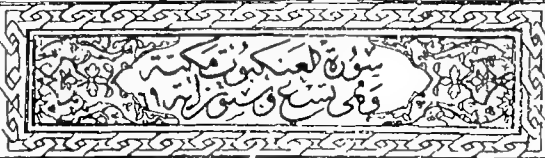 سورة العنكبوت مكية
وهي تسع وستون آية